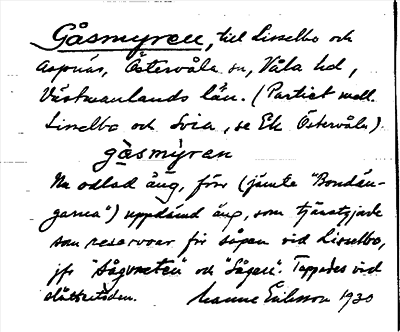 Gåsmyren, till Lisselbo och
Aspnäs, Östervåla sn, Våla hd,
Västmanlands län. (Partiet mell.
Lisselbo och Svia, se Ek Östervåla)
gåsmýran
Nu odlad äng, förr (jämte "Bondän-
garna") uppdämd äng, som tjänstgjorde
som reservoar för sågen vid Lisselbo,
jfr "Sågvreten" och "Sågen". Tappades vid
slåttertiden. Manne Eriksson 1930